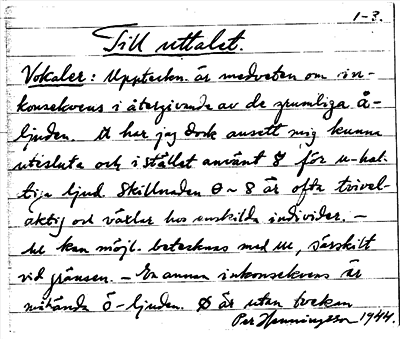 1-3.
Till uttalet.
Vokaler: Uppteckn. är medveten om in-
konsekvens i återgivande av de grumliga å-
ljuden. har jag dock ansett mig kunna
utesluta och i stället använt 8 för u-hal-
tiga ljud. Skillnaden ɵ ~ 8 är ofta tvivel-
aktig och växlar hos enskilda individer. –
kan möjl. betecknas med särskilt
vid gränsen. – En annan inkonsekvens är
måhända ö-ljuden. Ø är utan tvekan
Per Henningsson 1944.